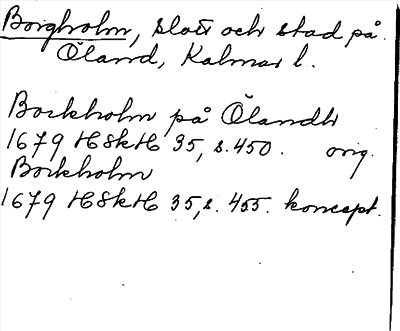 Borgholm, slott och stad på
Öland, Kalmar l.
Borkholm på Ölandh
1679 HSkH 35, s. 450. orig.
Borkholm
1679 HSkH 35, s. 455. koncept.